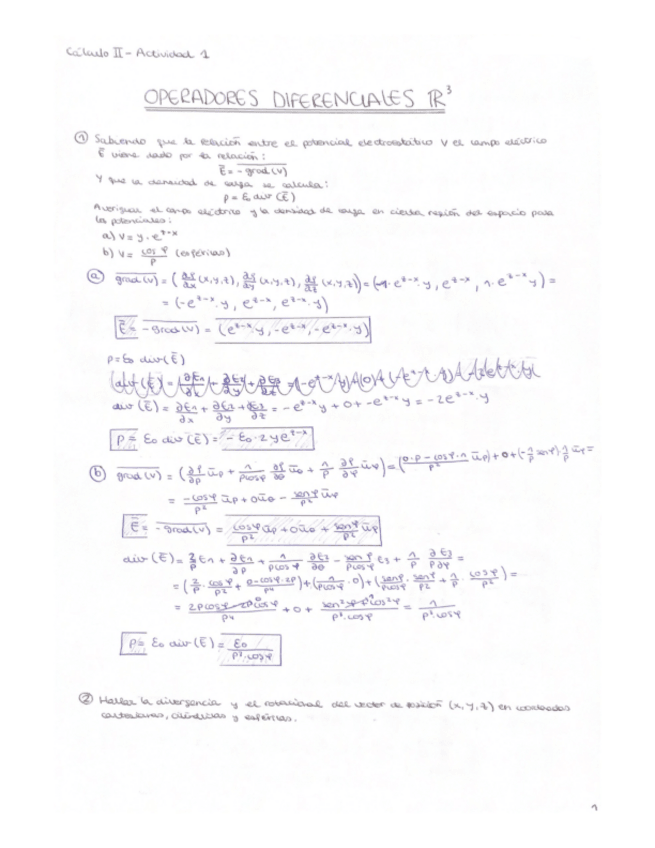 Cálculo II - Actividad 1
OPERADORES DIFERENCIALES ℝ³
① Sabiendo que la relación entre el potencial electrostático V el campo eléctrico
E̅ viene dado por la relación:
E̅ = - grad(V)
Y que la densidad de carga se calcula:
ρ = ε₀ div (E̅)
Averiguar el campo eléctrico y la densidad de carga en cierta región del espacio para
los potenciales:
a) V = y · e^(z-x)
b) V = cos φ / ρ (esféricas)
ⓐ grad(V) = (∂V/∂x (x,y,z), ∂V/∂y (x,y,z), ∂V/∂z (x,y,z)) = (-1 · e^(z-x) · y, e^(z-x), 1 · e^(z-x) y) =
= (-e^(z-x) · y, e^(z-x), e^(z-x) y)
E̅ = - grad(V) = (e^(z-x) y, -e^(z-x), -e^(z-x) y)
ρ = ε₀ div (E̅)
div (E̅) = ∂E1/∂x + ∂E2/∂y + ∂E3/∂z = -e^(z-x) y + 0 + -e^(z-x) y = -2e^(z-x) · y
ρ = ε₀ div (E̅) = - ε₀ · 2ye^(z-x)
ⓑ grad(V) = (∂f/∂ρ u̅ρ + 1/(ρcosφ) ∂f/∂θ u̅θ + 1/ρ ∂f/∂φ u̅φ) = ((0·ρ - cosφ·1)/ρ² u̅ρ) + 0 + (-1/ρ senφ) · 1/ρ u̅φ =
= -cosφ/ρ² u̅ρ + 0u̅θ - senφ/ρ² u̅φ
E̅ = - grad(V) = cosφ/ρ² u̅ρ + 0u̅θ + senφ/ρ² u̅φ
div (E̅) = 2/ρ E1 + ∂E1/∂ρ + 1/(ρcosφ) ∂E2/∂θ - senφ/(ρcosφ) E3 + 1/ρ ∂E3/∂φ =
= (2/ρ · cosφ/ρ² + (0-cosφ·2ρ)/ρ⁴) + (1/(ρcosφ) · 0) + (senφ/(ρcosφ) · senφ/ρ² + 1/ρ · cosφ/ρ²) =
= (2ρcosφ - 2ρcosφ)/ρ⁴ + 0 + (sen²φ + cos²φ)/(ρ³·cosφ) = 1/(ρ³cosφ)
ρ = ε₀ div (E̅) = ε₀/(ρ³·cosφ)
② Hallar la divergencia y el rotacional del vector de posición (x,y,z) en coordenadas
cartesianas, cilíndricas y esféricas.
1